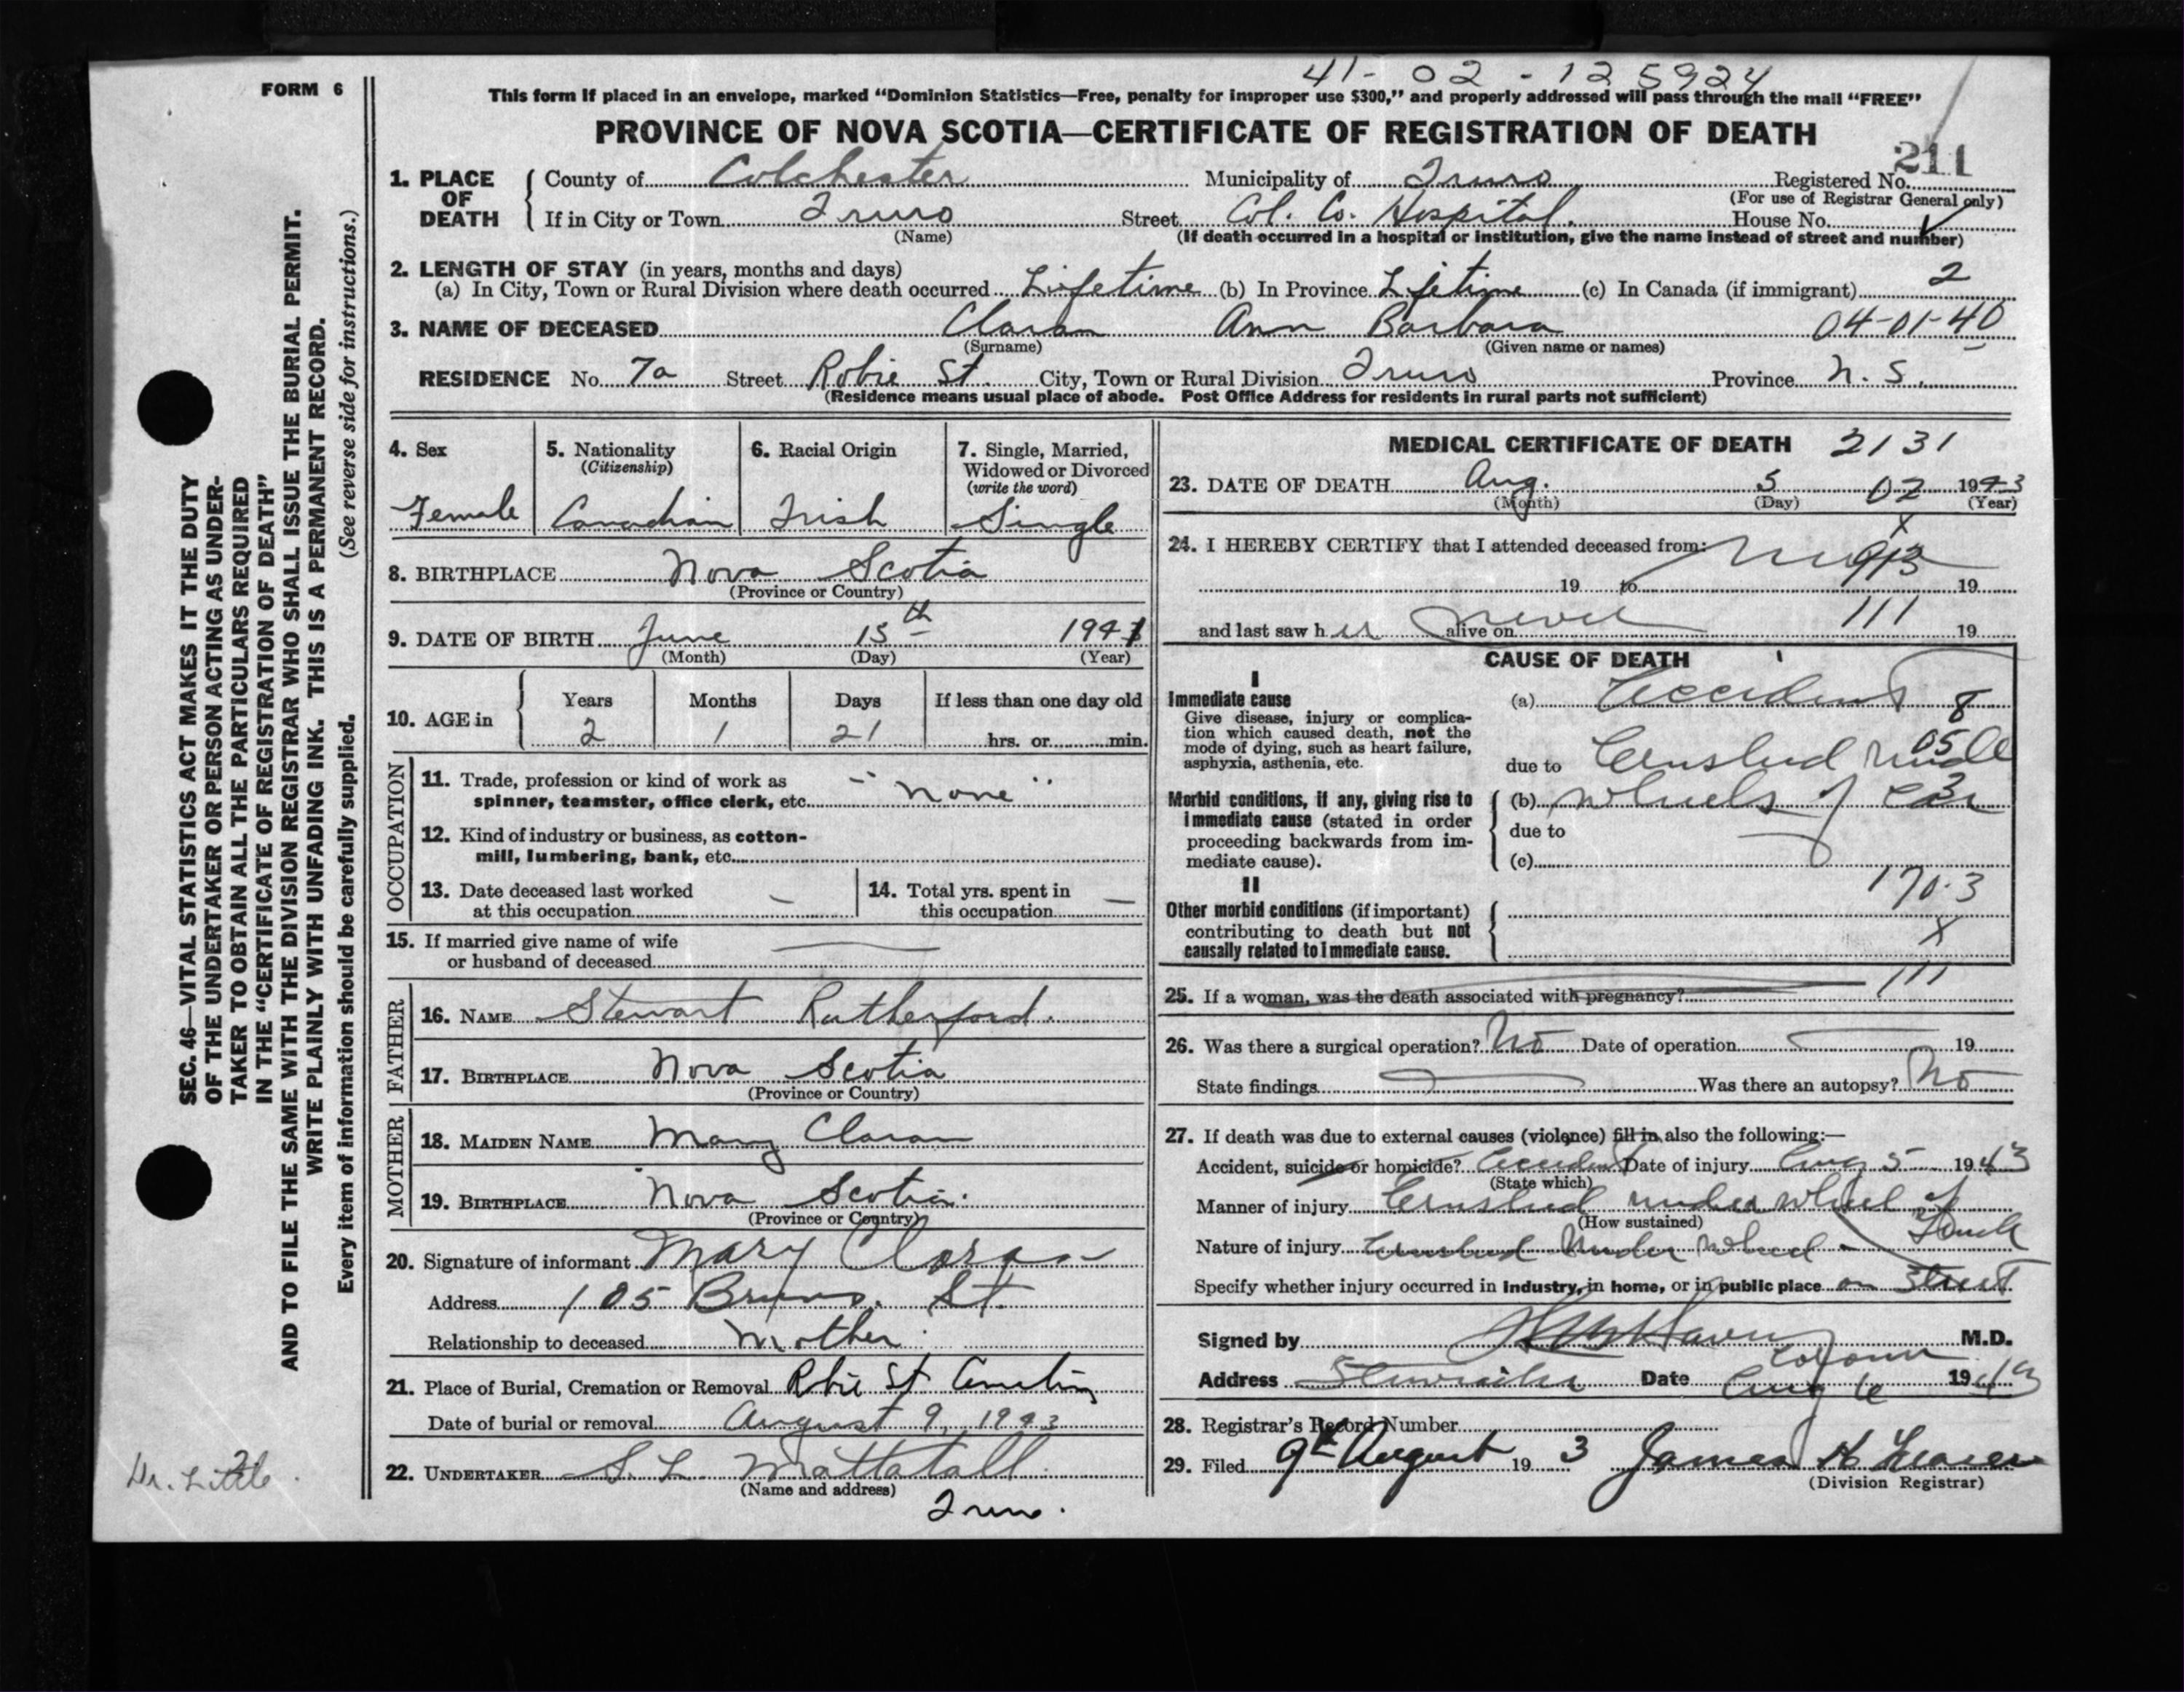 41-02-125924
FORM 6
This form if placed in an envelope, marked "Dominion Statistics—Free, penalty for improper use $300," and properly addressed will pass through the mail "FREE"
PROVINCE OF NOVA SCOTIA—CERTIFICATE OF REGISTRATION OF DEATH
211
1. PLACE OF DEATH
County of Colchester Municipality of Truro Registered No.
(For use of Registrar General only)
If in City or Town Truro Street Col. Co. Hospital. House No.
(Name) (If death occurred in a hospital or institution, give the name instead of street and number)
2. LENGTH OF STAY (in years, months and days)
(a) In City, Town or Rural Division where death occurred Lifetime (b) In Province Lifetime (c) In Canada (if immigrant) 2
3. NAME OF DECEASED Claran Ann Barbara 04-01-40
(Surname) (Given name or names)
RESIDENCE No. 7a Street Robie St. City, Town or Rural Division Truro Province N. S.
(Residence means usual place of abode. Post Office Address for residents in rural parts not sufficient)
4. Sex
Female
5. Nationality
(Citizenship)
Canadian
6. Racial Origin
Irish
7. Single, Married,
Widowed or Divorced
(write the word)
Single
8. BIRTHPLACE Nova Scotia
(Province or Country)
9. DATE OF BIRTH June 15th 1941
(Month) (Day) (Year)
10. AGE in
Years Months Days If less than one day old
2 1 21 hrs. or min.
OCCUPATION
11. Trade, profession or kind of work as
spinner, teamster, office clerk, etc. "none"
12. Kind of industry or business, as cotton-
mill, lumbering, bank, etc.
13. Date deceased last worked
at this occupation —
14. Total yrs. spent in
this occupation —
15. If married give name of wife
or husband of deceased
FATHER
16. NAME Stewart Rutherford.
17. BIRTHPLACE Nova Scotia
(Province or Country)
MOTHER
18. MAIDEN NAME Mary Claran
19. BIRTHPLACE Nova Scotia.
(Province or Country)
20. Signature of informant Mary Claran
Address 105 St.
Relationship to deceased Mother
21. Place of Burial, Cremation or Removal Robie St Cemetery
Date of burial or removal August 9, 1943
22. UNDERTAKER S. L. Mattatall
(Name and address)
Truro.
MEDICAL CERTIFICATE OF DEATH 2131
23. DATE OF DEATH Aug. 5 07 1943
(Month) (Day) (Year)
24. I HEREBY CERTIFY that I attended deceased from: x
19 to 913 19
and last saw her never alive on 111 19
CAUSE OF DEATH
I
Immediate cause
Give disease, injury or complica-
tion which caused death, not the
mode of dying, such as heart failure,
asphyxia, asthenia, etc.
(a) Accident 8
due to Crushed under 05
Morbid conditions, if any, giving rise to
immediate cause (stated in order
proceeding backwards from im-
mediate cause).
(b) wheels of car 3
due to
(c)
II
Other morbid conditions (if important)
contributing to death but not
causally related to immediate cause.
170.3
X
25. If a woman, was the death associated with pregnancy? 111
26. Was there a surgical operation? No Date of operation 19
State findings Was there an autopsy? No
27. If death was due to external causes (violence) fill in also the following:—
Accident, suicide or homicide? Accident Date of injury Aug 5 1943
(State which)
Manner of injury Crushed under wheel of
(How sustained) Truck
Nature of injury Crushed Under Wheel
Specify whether injury occurred in industry, in home, or in public place on Street
Signed by M.D.
Coroner
Address Stewiacke Date Aug 6 1943
28. Registrar's Record Number
29. Filed 9th August 19 3 James H
(Division Registrar)
SEC. 46—VITAL STATISTICS ACT MAKES IT THE DUTY
OF THE UNDERTAKER OR PERSON ACTING AS UNDER-
TAKER TO OBTAIN ALL THE PARTICULARS REQUIRED
IN THE "CERTIFICATE OF REGISTRATION OF DEATH"
AND TO FILE THE SAME WITH THE DIVISION REGISTRAR WHO SHALL ISSUE THE BURIAL PERMIT.
WRITE PLAINLY WITH UNFADING INK. THIS IS A PERMANENT RECORD.
Every item of information should be carefully supplied. (See reverse side for instructions.)
Dr. Little.